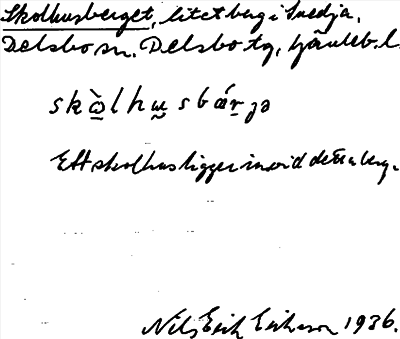 Skolhusberget, litet berg i Svedja,
Delsbo sn. Delsbo tg, Gävleb. l.
skò̱lhu̱sbár̠ja
Ett skolhus ligger invid detta berg.
Nils Erik Erikson 1936.